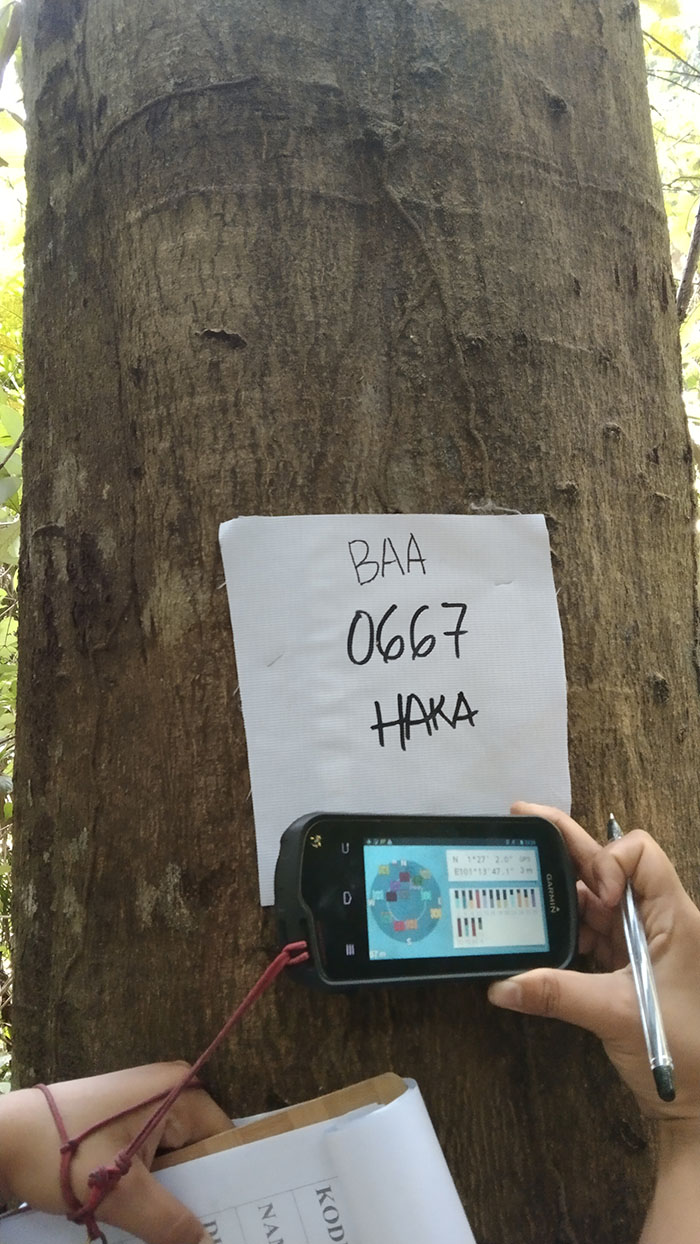 BAA
0667
HAKA
N 1°27' 2.0" GPS
E101°13'47.1" 3 m
GARMIN
S
67 m
KODE
NAM